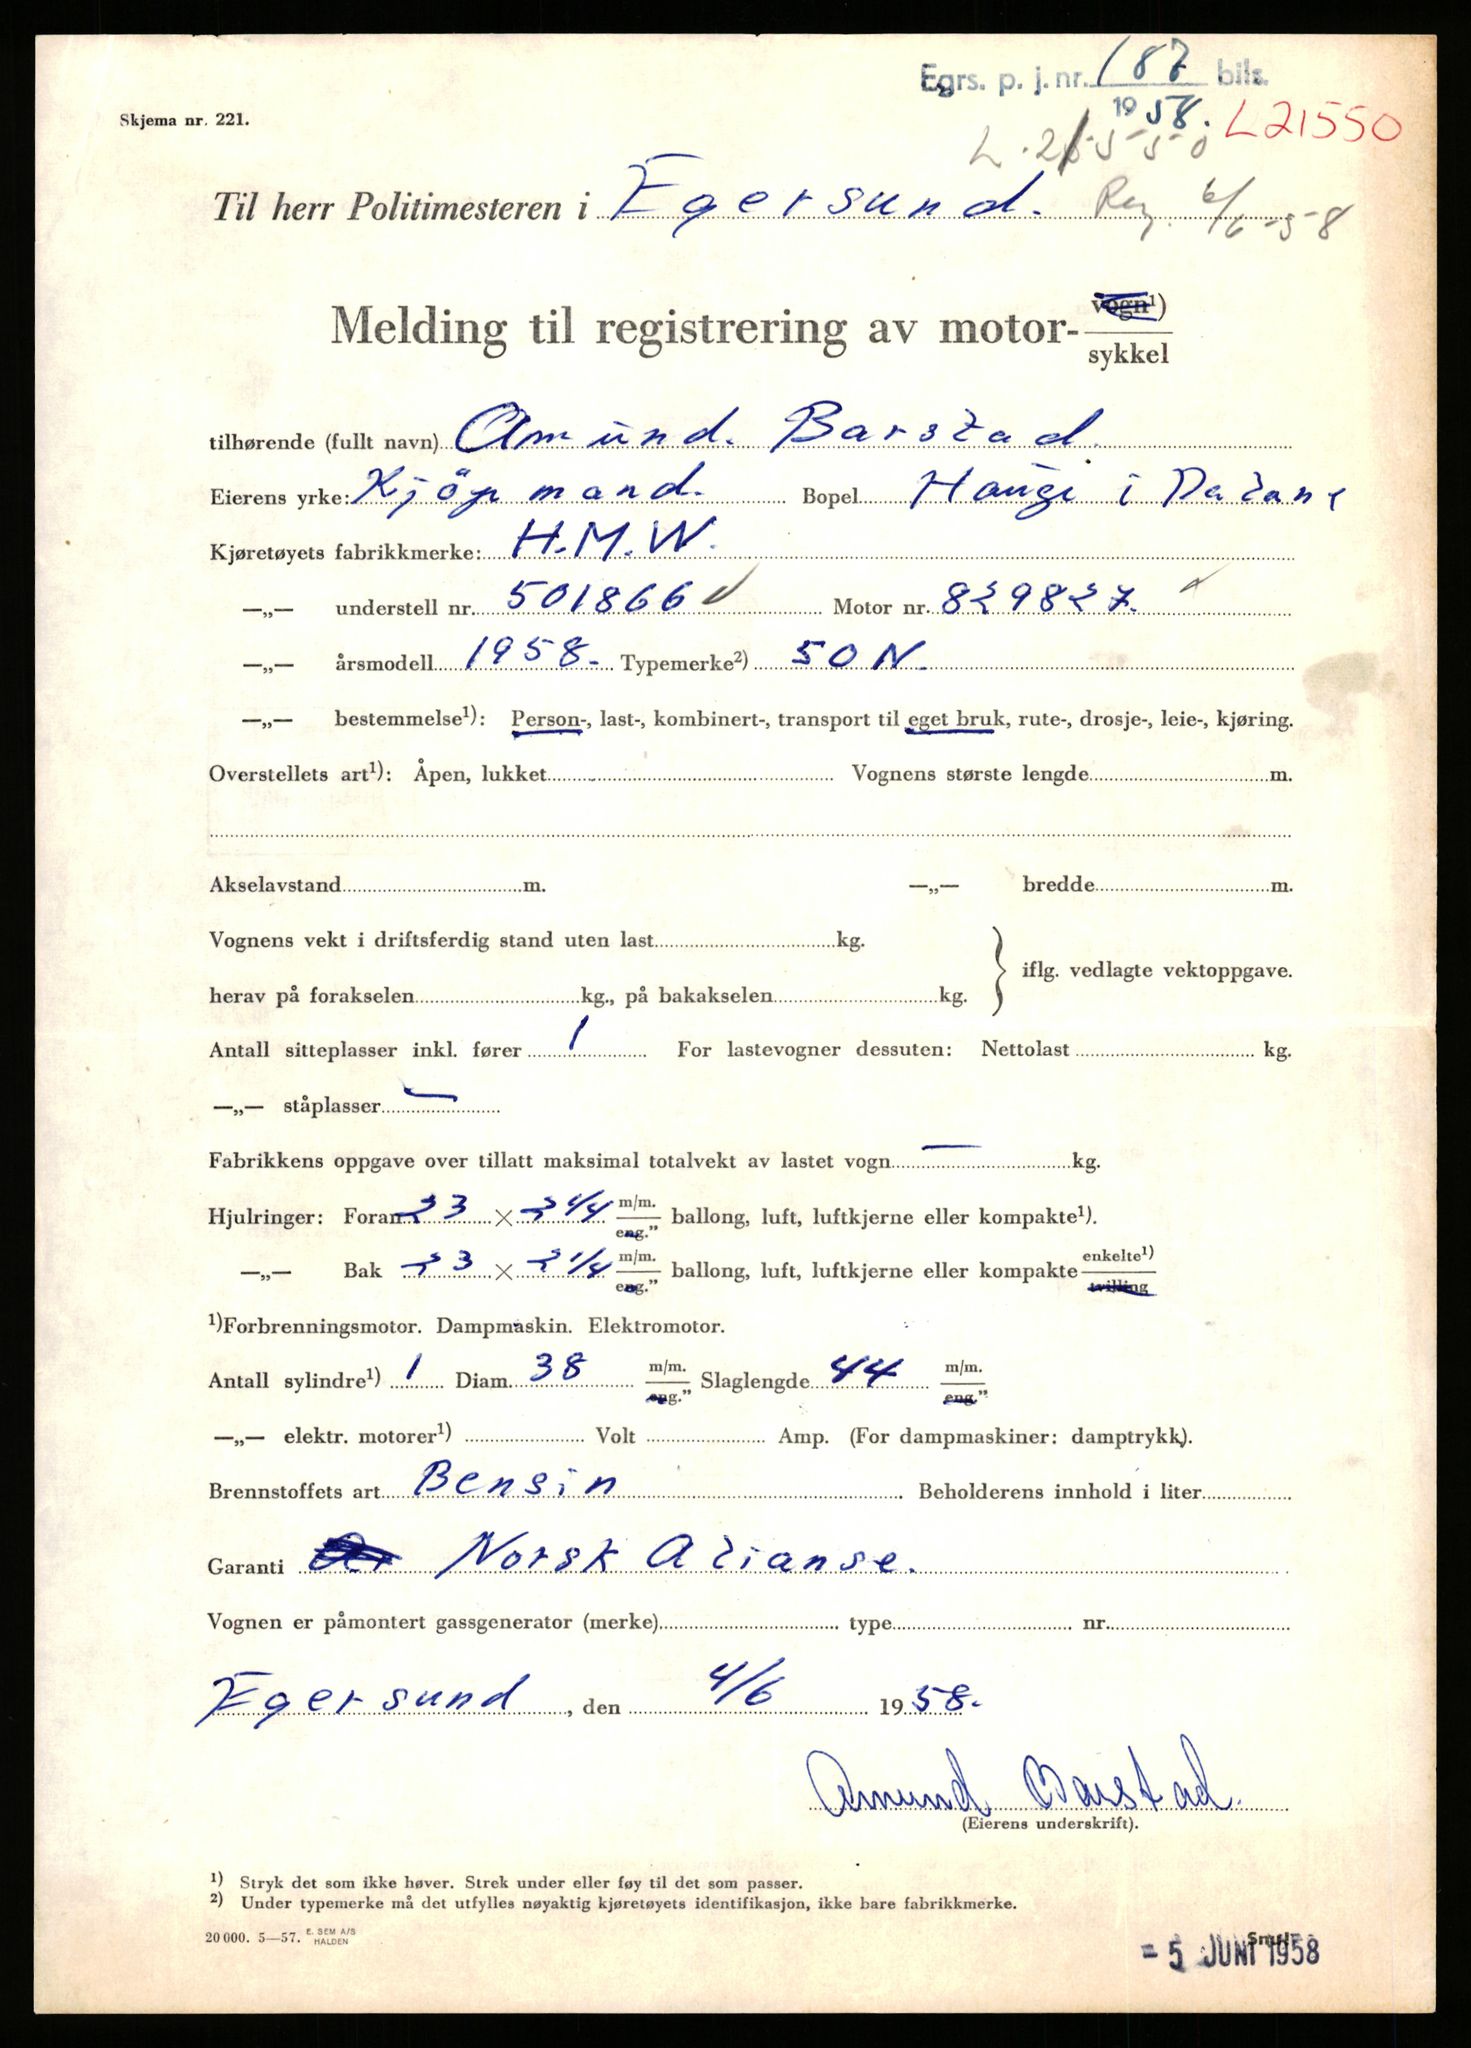 Egrs. p. j. nr. 187 bils.
1958.
L21550
Skjema nr. 221.
L. 21550
Til herr Politimesteren i Egersund. Reg. 6/6-58
Melding til registrering av motor-vogn¹) sykkel
tilhørende (fullt navn) Amund. Barstad.
Eierens yrke: Kjöpmand. Bopel Haugi i Dalane
Kjøretøyets fabrikkmerke: H.M.W.
—„— understell nr. 501866 Motor nr. 829827.
—„— årsmodell 1958. Typemerke²) 50 N.
—„— bestemmelse¹): Person-, last-, kombinert-, transport til eget bruk, rute-, drosje-, leie-, kjøring.
Overstellets art¹): Åpen, lukket Vognens største lengde m.
Akselavstand m. —„— bredde m.
Vognens vekt i driftsferdig stand uten last kg.
iflg. vedlagte vektoppgave.
herav på forakselen kg., på bakakselen kg.
Antall sitteplasser inkl. fører 1 For lastevogner dessuten: Nettolast kg.
—„— ståplasser —
Fabrikkens oppgave over tillatt maksimal totalvekt av lastet vogn — kg.
Hjulringer: Foran 23 × 2 1/4 m/m. eng.” ballong, luft, luftkjerne eller kompakte¹).
—„— Bak 23 × 2 1/4 m/m. eng.” ballong, luft, luftkjerne eller kompakte enkelte¹) tvilling
¹)Forbrenningsmotor. Dampmaskin. Elektromotor.
Antall sylindre¹) 1 Diam. 38 m/m. eng.” Slaglengde 44 m/m. eng.”
—„— elektr. motorer¹) Volt Amp. (For dampmaskiner: damptrykk).
Brennstoffets art Bensin Beholderens innhold i liter
Garanti Norsk Alianse.
Vognen er påmontert gassgenerator (merke) type nr.
Egersund, den 4/6 1958.
Amund Barstad.
(Eierens underskrift).
¹) Stryk det som ikke høver. Strek under eller føy til det som passer.
²) Under typemerke må det utfylles nøyaktig kjøretøyets identifikasjon, ikke bare fabrikkmerke.
20 000. 5—57. E. SEM A/S HALDEN
- 5 JUNI 1958